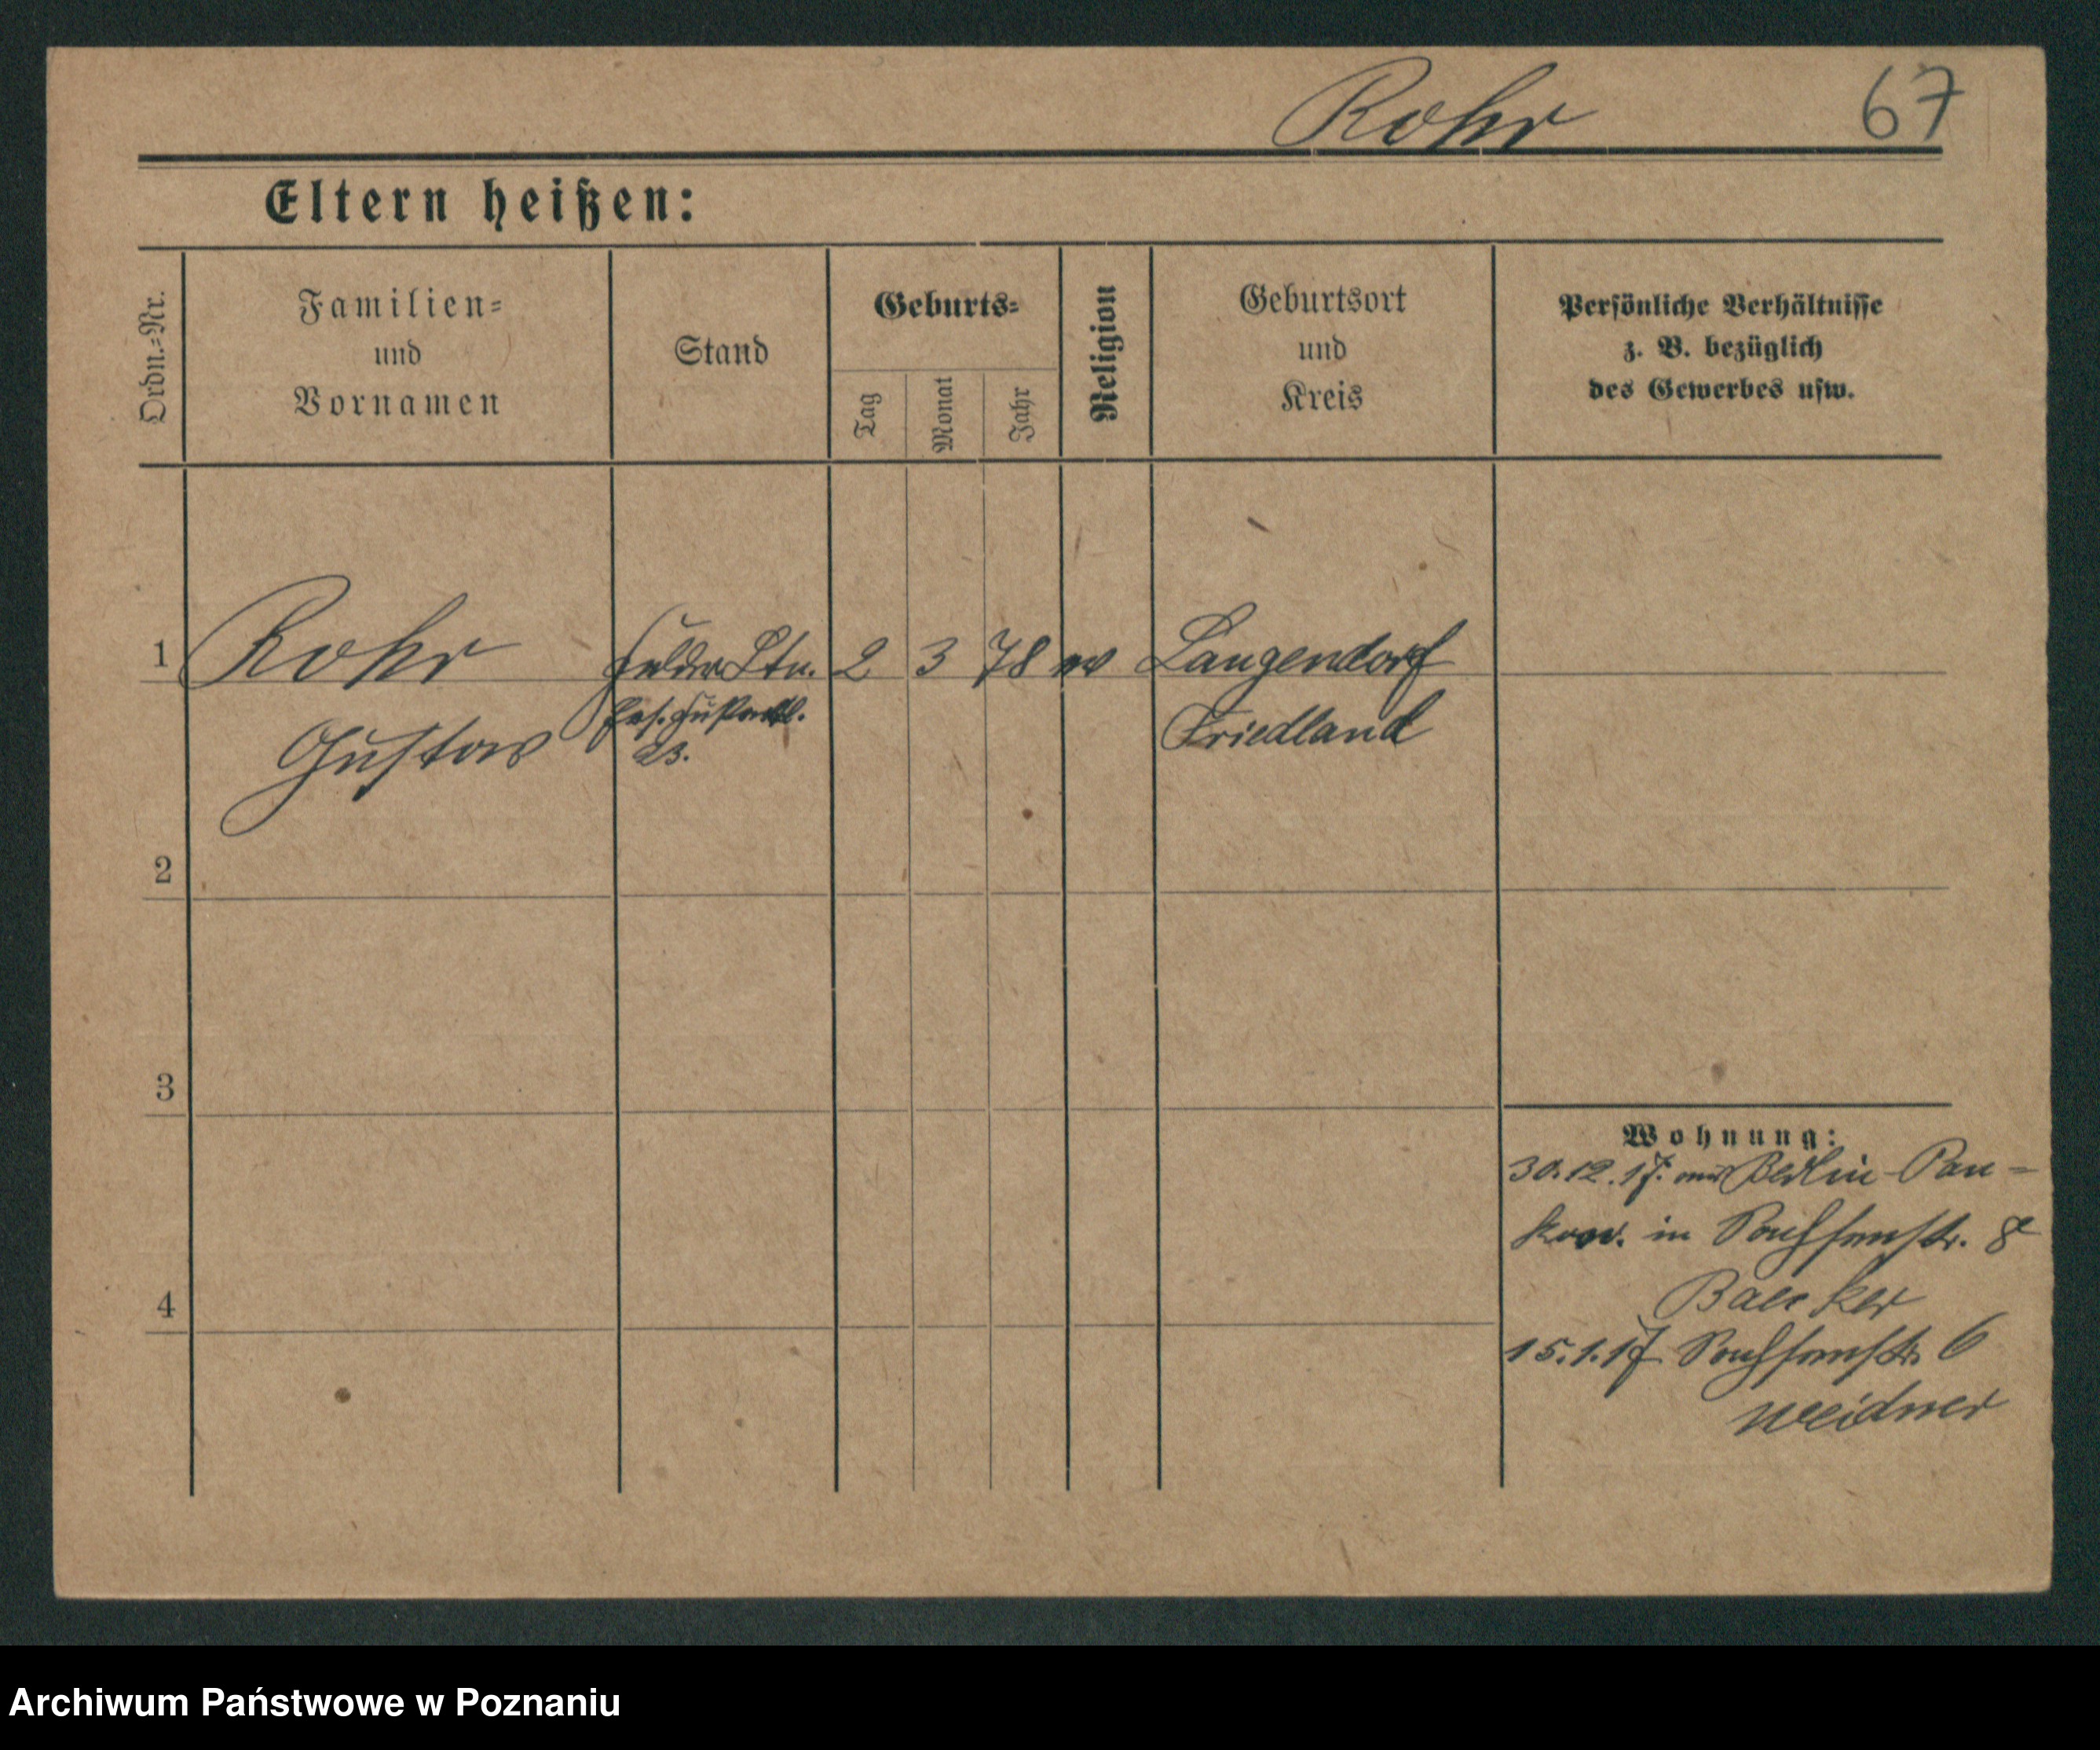 Rohr 67
Eltern heißen:
Ordn.-Nr.
Familien-
und
Vornamen
Stand
Geburts-
Tag
Monat
Jahr
Religion
Geburtsort
und
Kreis
Persönliche Verhältnisse
z. B. bezüglich
des Gewerbes usw.
1 Rohr Ltn. 2 3 78 Langendorf
Gustav 23. Friedland
2
3
4
Wohnung:
30.12.17. aus Berlin-Pan-
kow. in 8
Baecker
15.1.17 6
Weidner
Archiwum Państwowe w Poznaniu